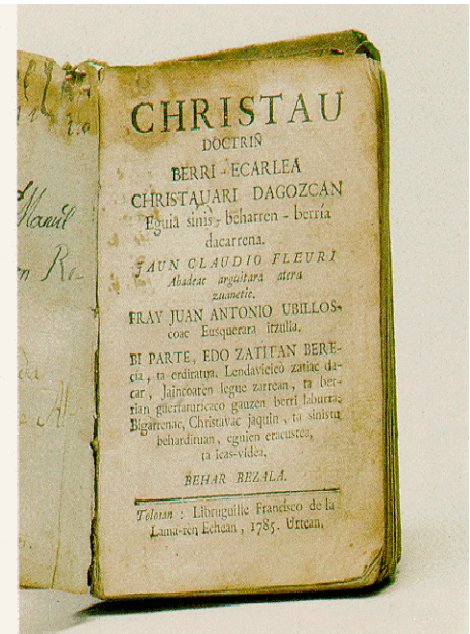 CHRISTAU
DOCTRIÑ
BERRI-ECARLEA
CHRISTAUARI DAGOZCAN
Eguia sinis-beharren-berria
dacarrena.
JAUN CLAUDIO FLEURI
Abadeac argitara atera
zuanetic.
FRAY JUAN ANTONIO UBILLOS-
coac Eusquerara itzulia.
BI PARTE, EDO ZATITAN BERE-
cia, ta ordiratua. Lendavicico zatiac da-
car, Jaincoaren legue zarrean, ta ber-
rian guertaturicaco gauzen berri laburra:
Bigarrenac, Christavac jaquin, ta sinistu
behardituan, eguien eracustea,
ta icas-videa.
BEHAR BEZALA.
Tolosan: Libruguille Francisco de la
Lama-ren Echean, 1785. Urtean.